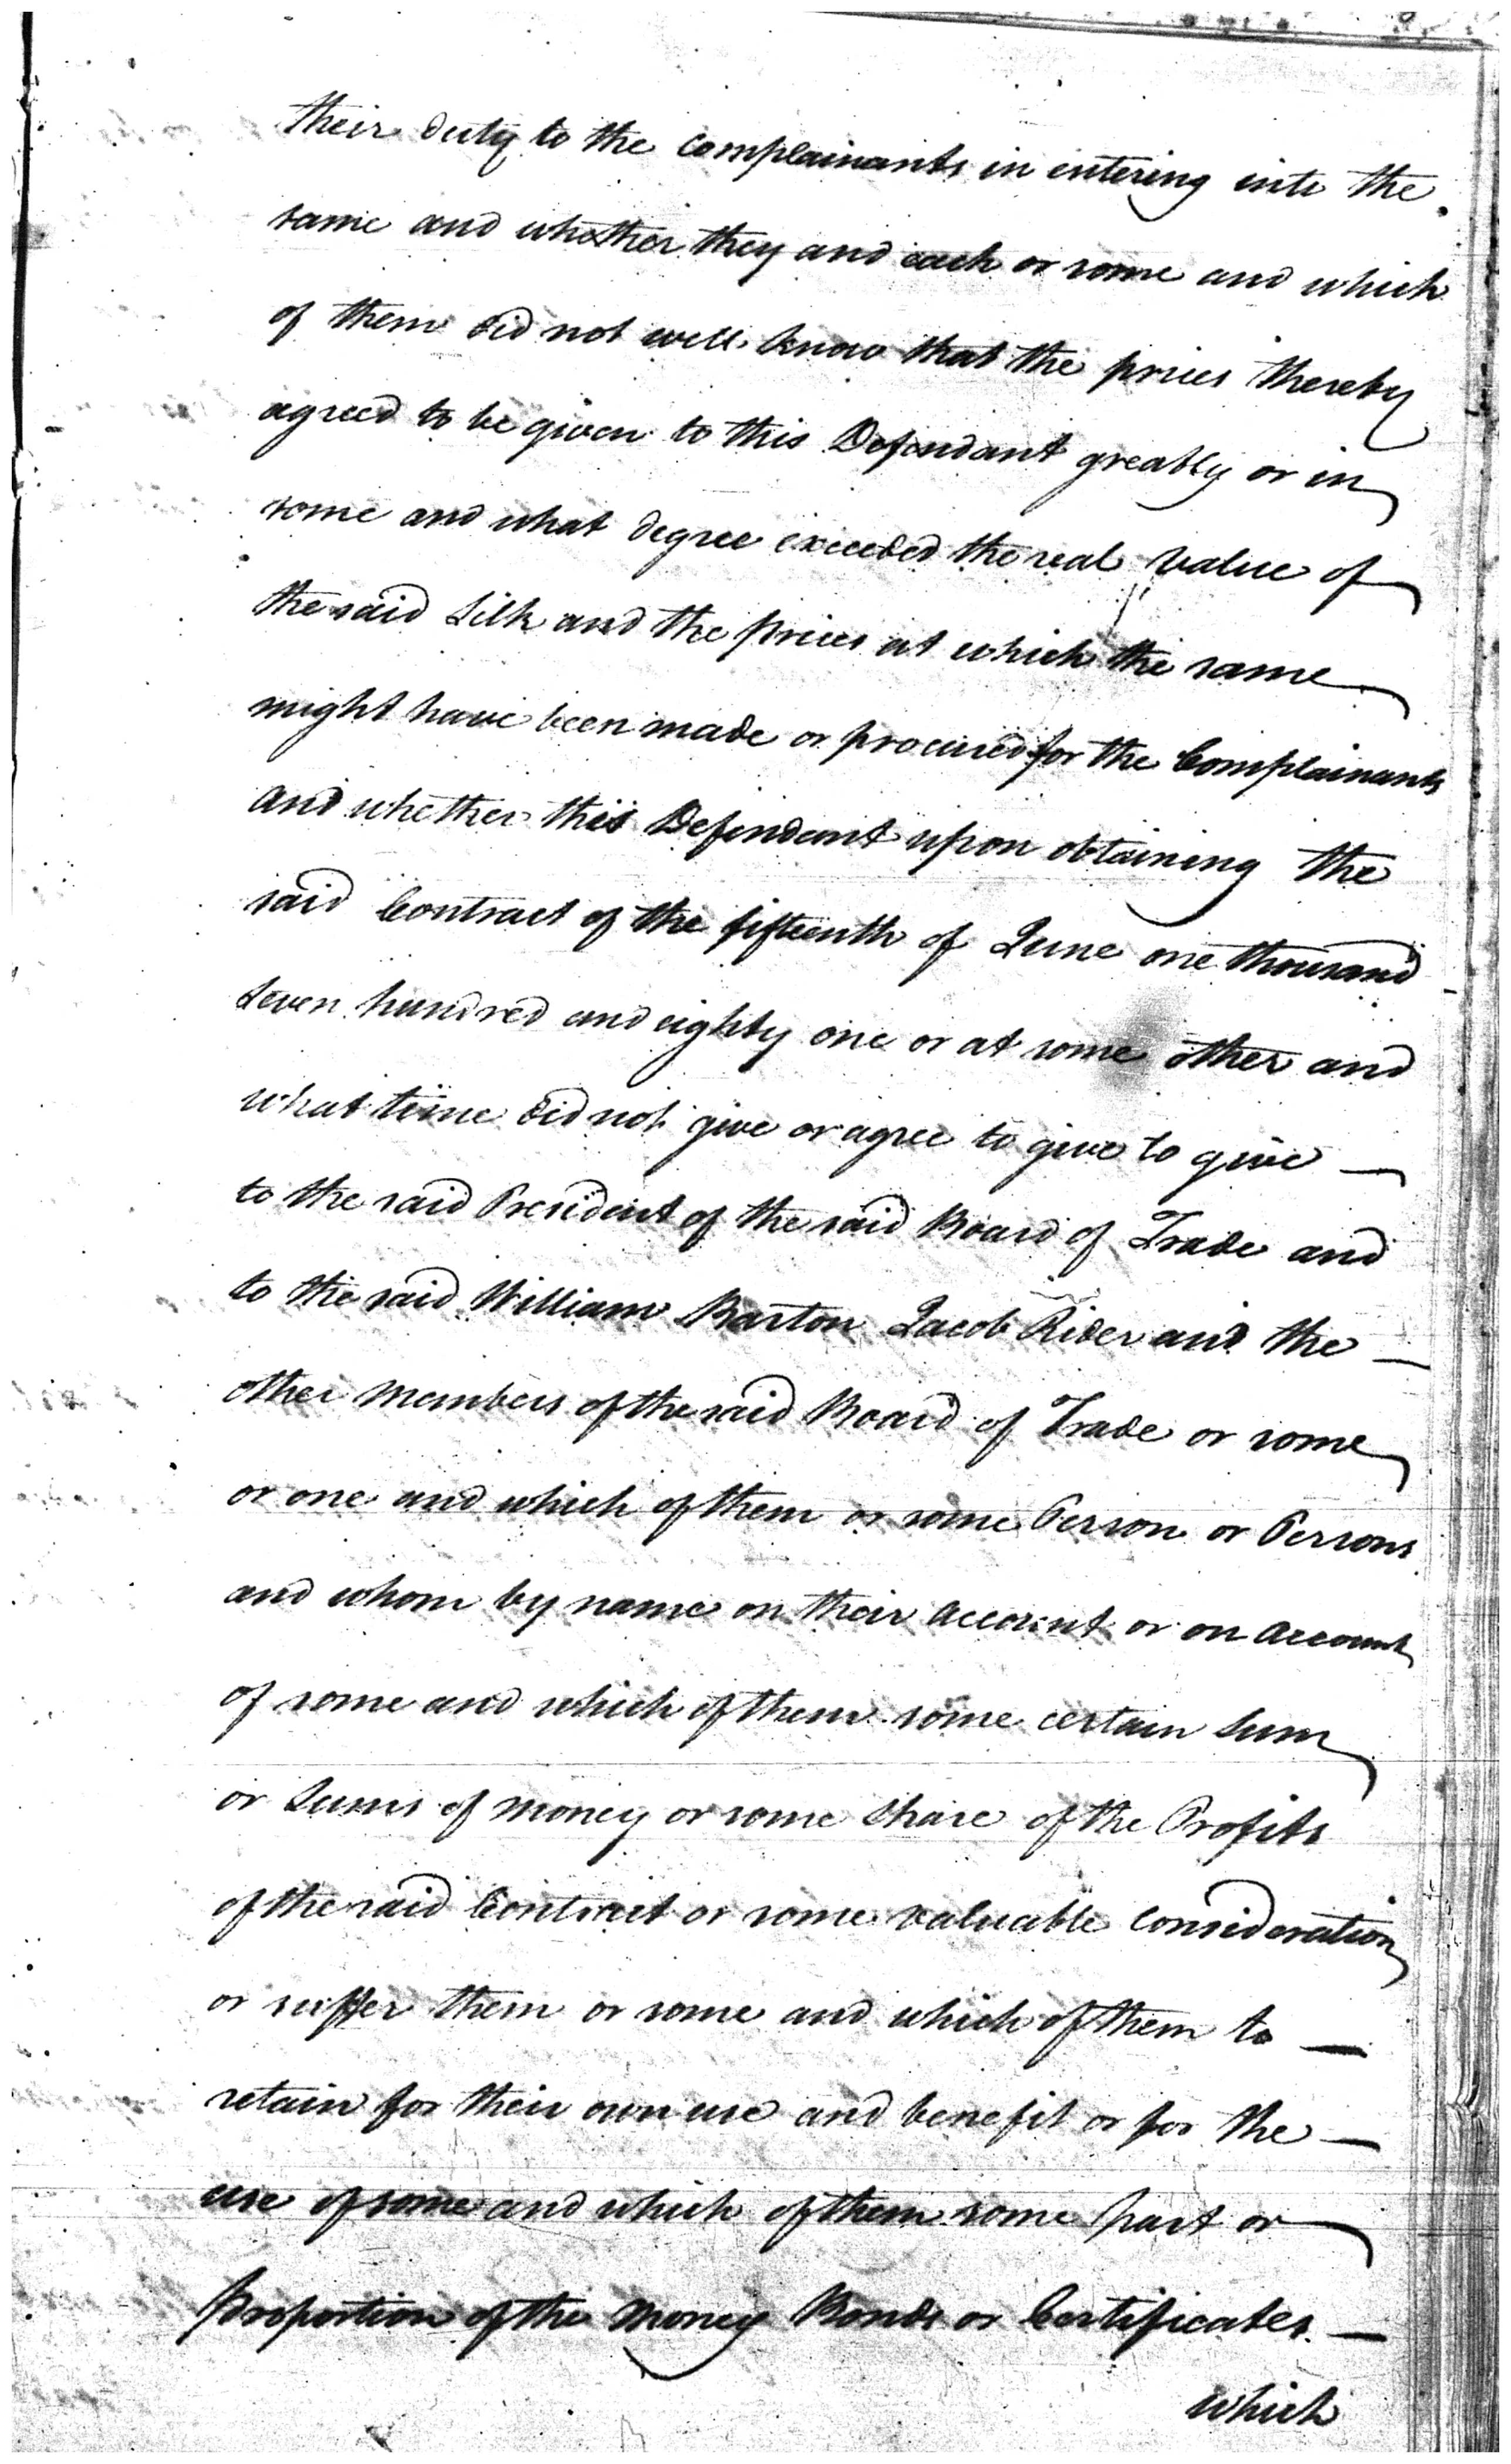 their duty to the complainants in entering into the
same and whether they and each or some and which
of them did not well know that the prices thereby
agreed to be given to this Defendant greatly or in
some and what degree exceeded the real value of
the said Silk and the prices at which the same
might have been made or procured for the Complainants
and whether this Defendant upon obtaining the
said Contract of the fifteenth of June one thousand
seven hundred and eighty one or at some other and
what time did not give or agree to give to give —
to the said President of the said Board of Trade and
to the said William Barton Jacob Rider and the —
other Members of the said Board of Trade or some
or one and which of them or some Person or Persons
and whom by name on their account or on account
of some and which of them some certain Sum
or Sums of money or some share of the Profits
of the said Contract or some valuable consideration
or suffer them or some and which of them to —
retain for their own use and benefit or for the —
use of some and which of them some part or
proportion of the money Bonds or Certificates —
which